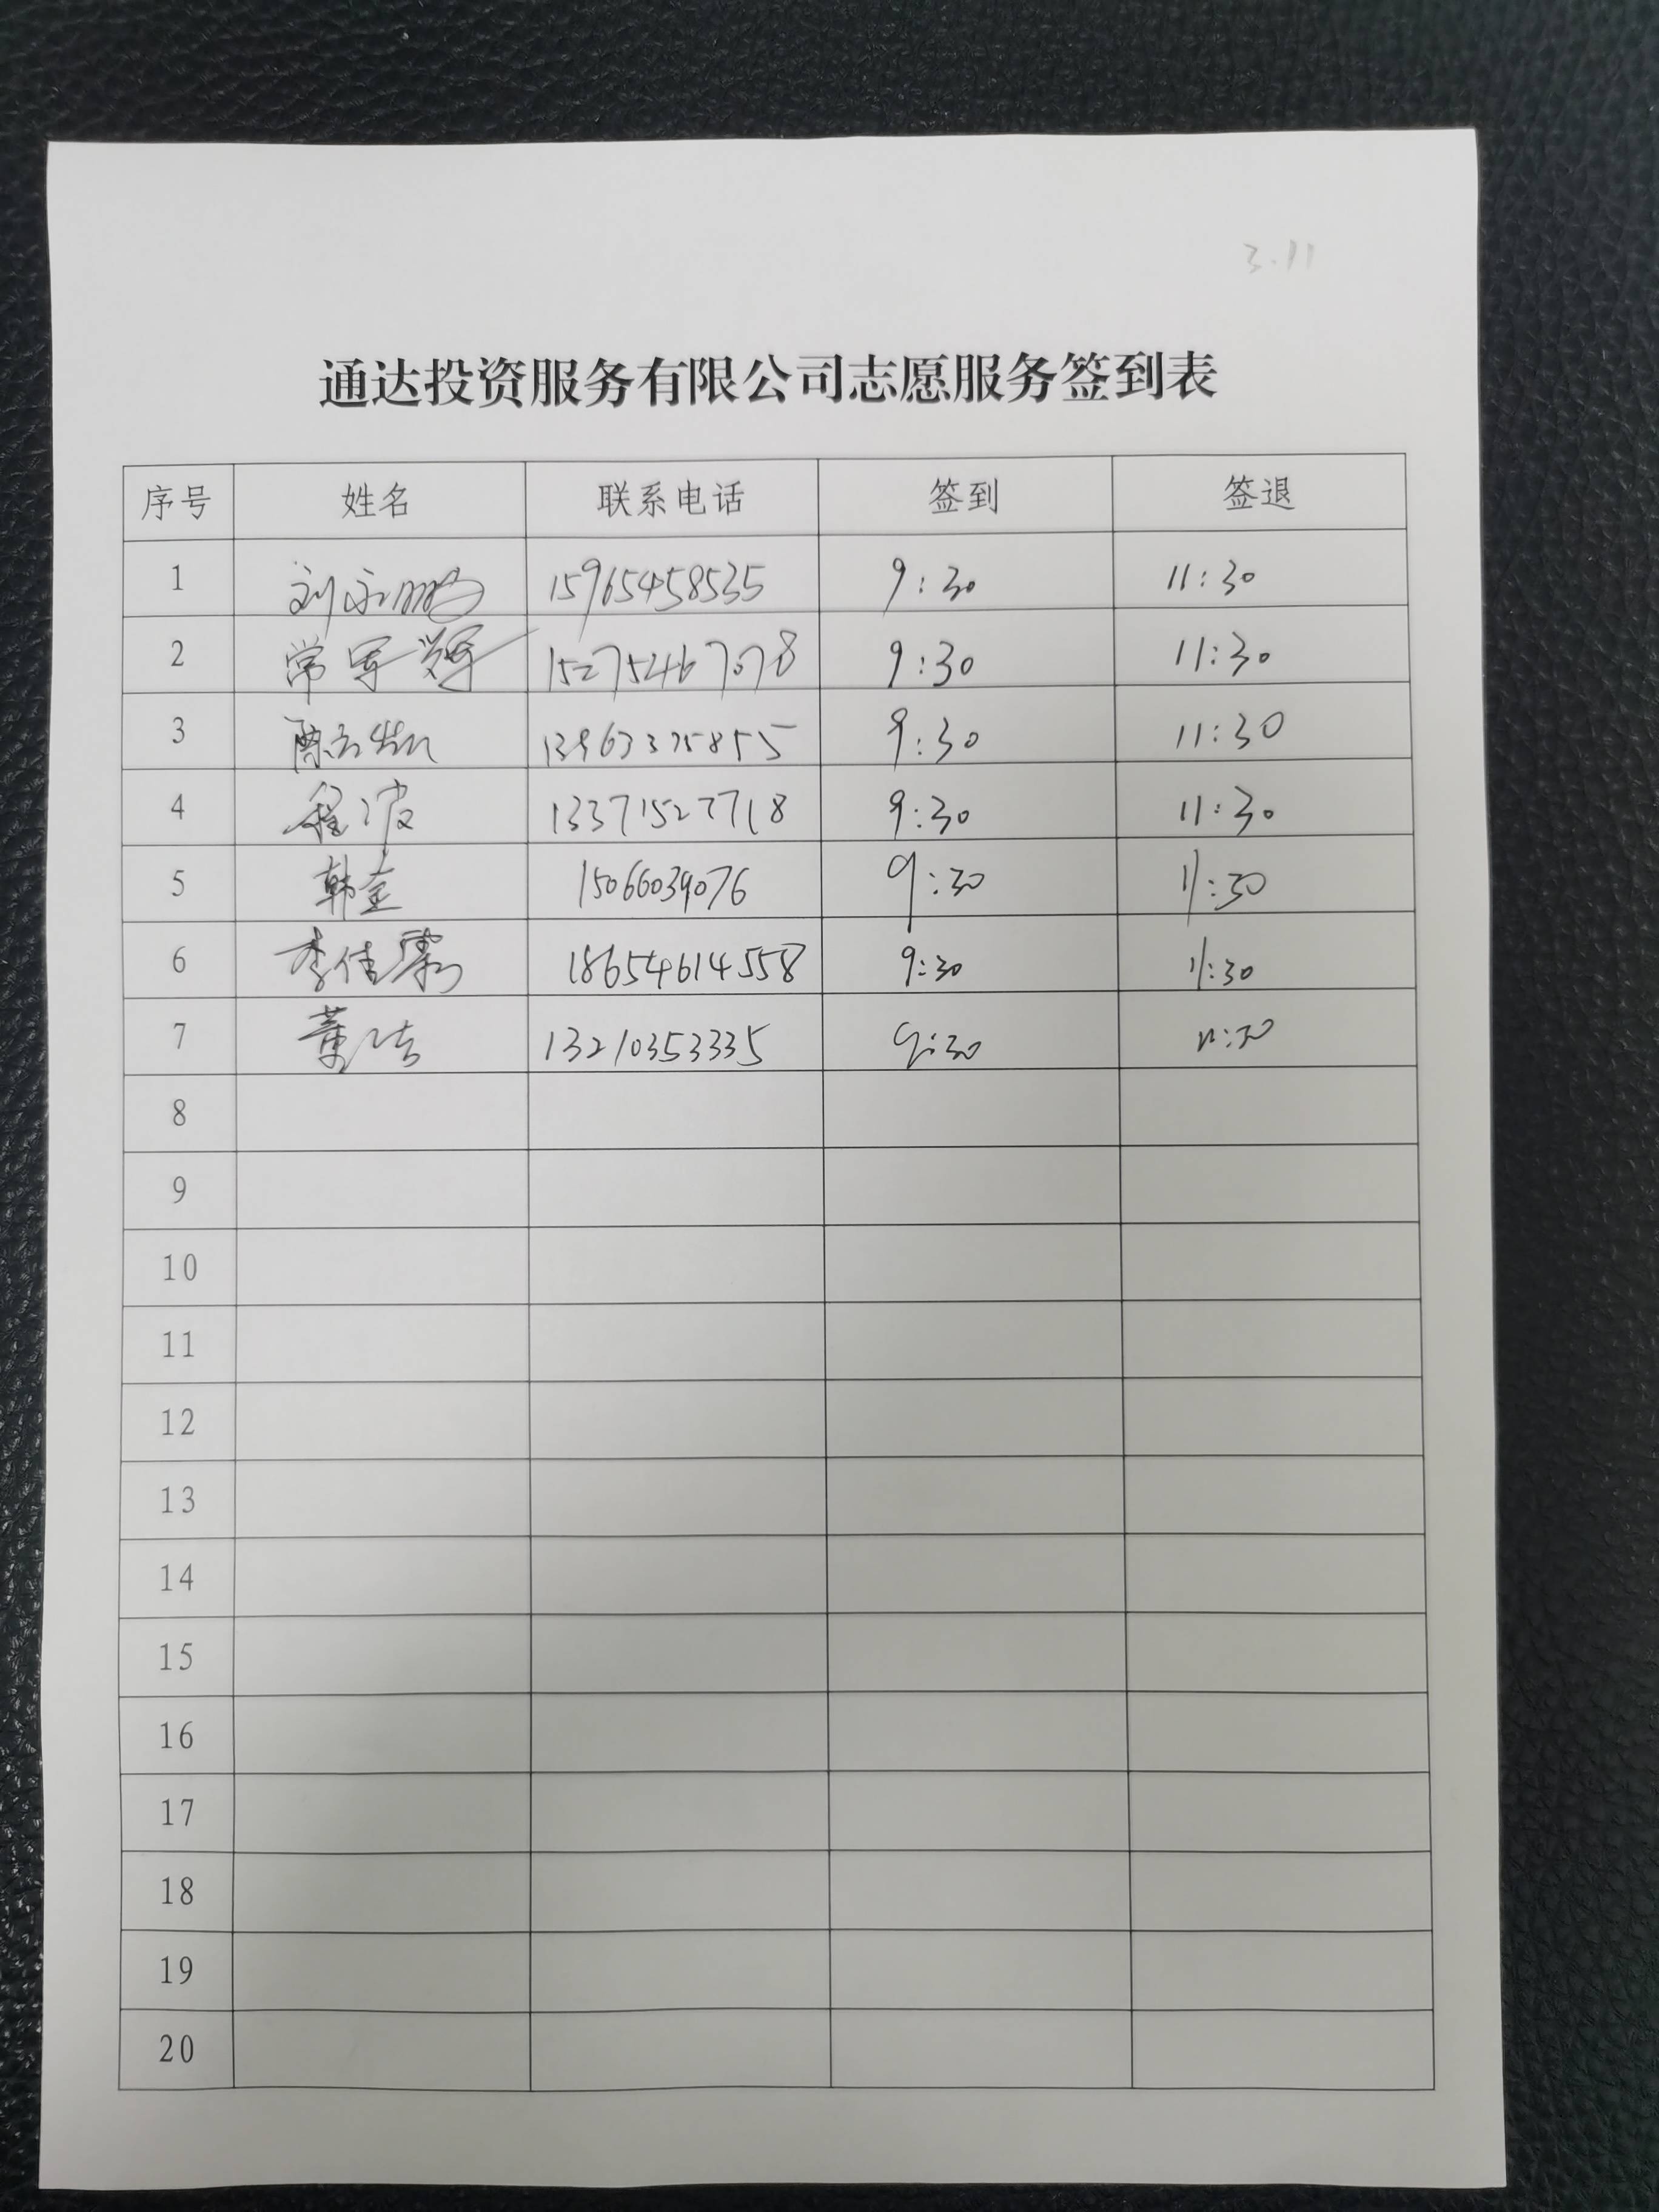 3.11
通达投资服务有限公司志愿服务签到表
序号 姓名 联系电话 签到 签退
1 刘永鹏 15965458535 9:30 11:30
2 常军辉 15275467078 9:30 11:30
3 9:30 11:30
4 程波 13371527718 9:30 11:30
5 韩金 15066039076 9:30 11:30
6 李佳 18654614558 9:30 11:30
7 董洁 13210353335 9:30 11:30
8
9
10
11
12
13
14
15
16
17
18
19
20